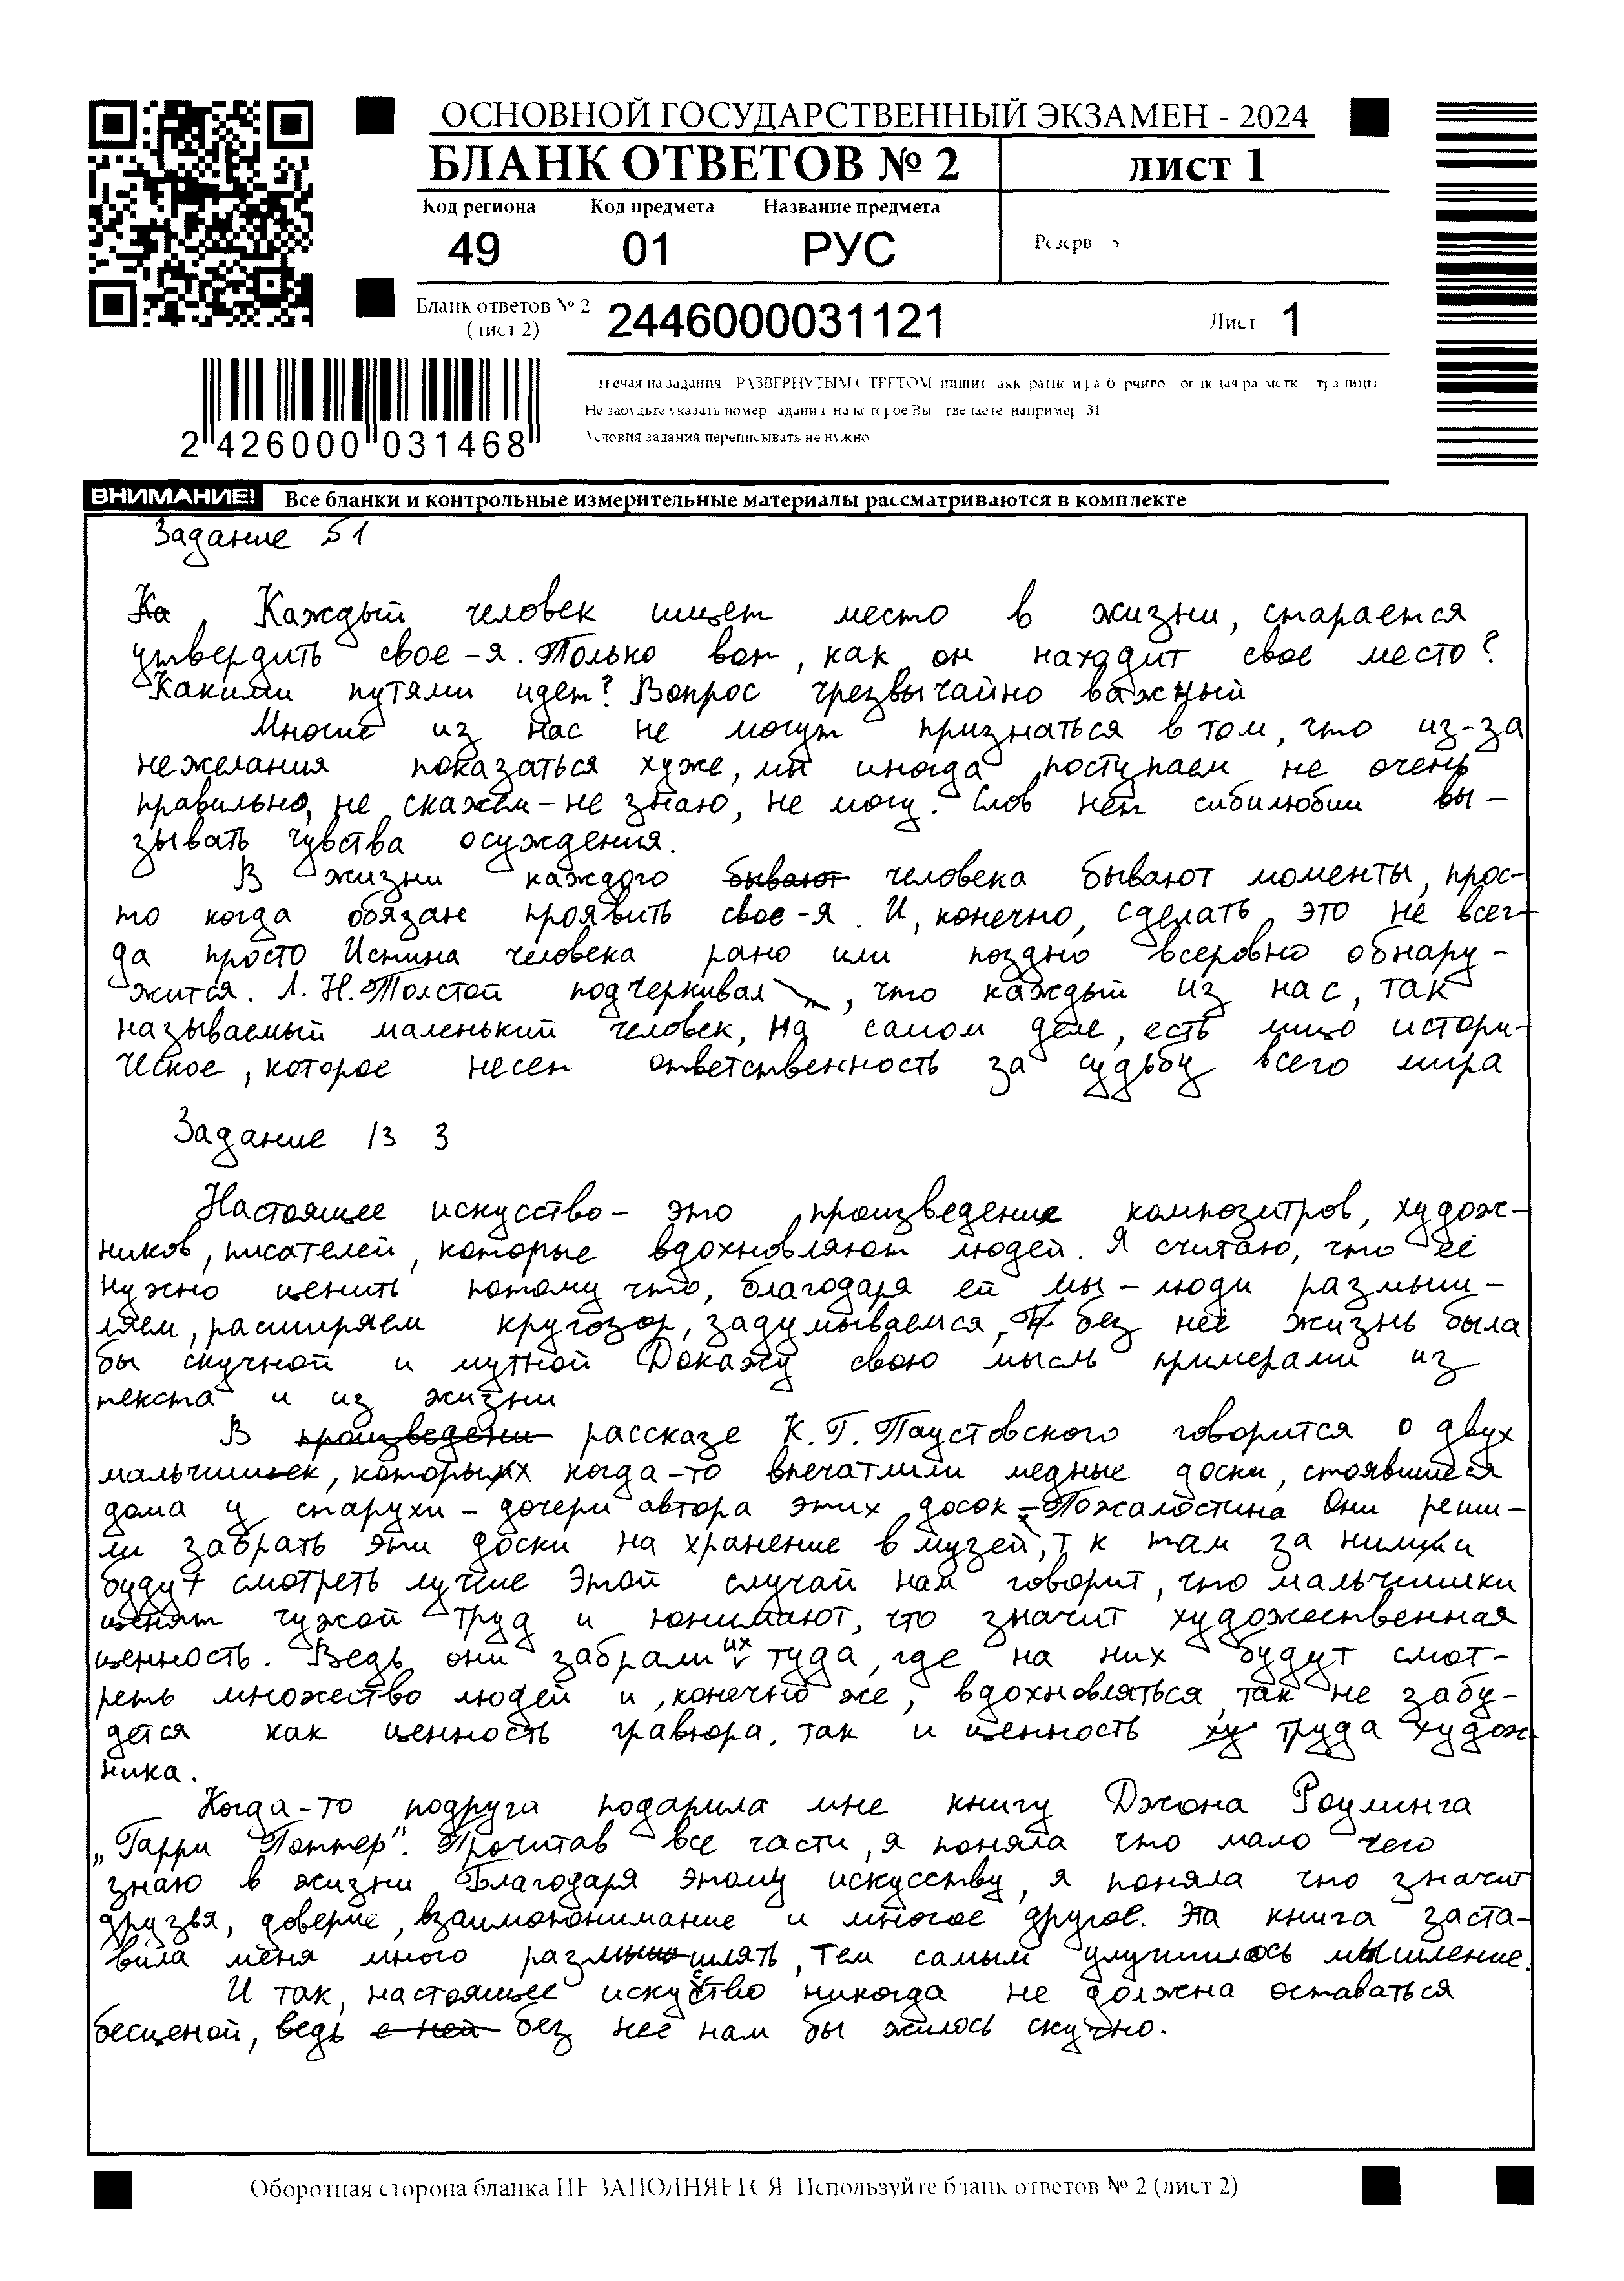 ОСНОВНОЙ ГОСУДАРСТВЕННЫЙ ЭКЗАМЕН - 2024
БЛАНК ОТВЕТОВ № 2
ЛИСТ 1
Код региона Код предмета Название предмета
49 01 РУС
Резерв
Бланк ответов № 2
(лист 2)
2446000031121
Лист 1
РАЗВЕРНУТЫМ
Не забудьте указать номер задания на которое Вы отвечаете например 31
Условия задания переписывать не нужно
2 426000 031468
ВНИМАНИЕ! Все бланки и контрольные измерительные материалы рассматриваются в комплекте
Задание 51
Ка Каждый человек ищет место в жизни, старается
утвердить свое-я. Только вот, как он находит свое место?
Какими путями идет? Вопрос чрезвычайно важный
Многие из нас не могут признаться в том, что из-за
нежелания показаться хуже, мы иногда поступаем не очень
правильно, не скажем-не знаю, не могу. Слов нет сибилюбии вы-
зывать чувства осуждения.
В жизни каждого бывают человека бывают моменты, прос-
то когда обязан проявить свое-я. И, конечно, сделать это не всег-
да просто Истина человека рано или поздно всеровно обнару-
жится. Л. Н. Толстой подчеркивал, что каждый из нас, так
называемый маленький человек, на самом деле, есть лицо истори-
ческое, которое несет ответственность за судьбу всего мира
Задание 13 3
Настоящее искусство- это произведение композитров, худож-
ников, писателей, которые вдохновляют людей. Я считаю, что её
нужно ценить потому что, благодаря ей мы-люди размыш-
ляем, расширяем кругозор, задумываемся, без неё жизнь была
бы скучной и мутной Докажу свою мысль примерами из
текста и из жизни
В произведени рассказе К. Г. Паустовского говорится о двух
мальчишек, которых когда-то впечатлили медные доски, стоявшиеся
дома у старухи - дочери автора этих досок - Пожалостина Они реши-
ли забрать эти доски на хранение в музей, т к там за ними
будут смотреть лучше Этой случай нам говорит, что мальчишки
ценят чужой труд и понимают, что значит художественная
ценность. Ведь они забрали их туда, где на них будут смот-
реть множество людей и, конечно же, вдохновляться, так не забу-
дется как ценность гравюра, так и ценность ху труда худож-
ника.
Когда-то подруга подарила мне книгу Джона Роулинга
„Гарри Поттер". Прочитав все части, я поняла что мало чего
знаю в жизни Благодаря этому искусству, я поняла что значит
друзья, доверие, взаимопонимание и многое другое. Эта книга заста-
вила меня много размышлять, тем самым улучшилось мышление.
И так, настоящее искусство никогда не должна оставаться
бесценой, ведь с ней без неё нам бы жилось скучно.
Оборотная сторона бланка НЕ ЗАПОЛНЯЕТСЯ Используйте бланк ответов № 2 (лист 2)